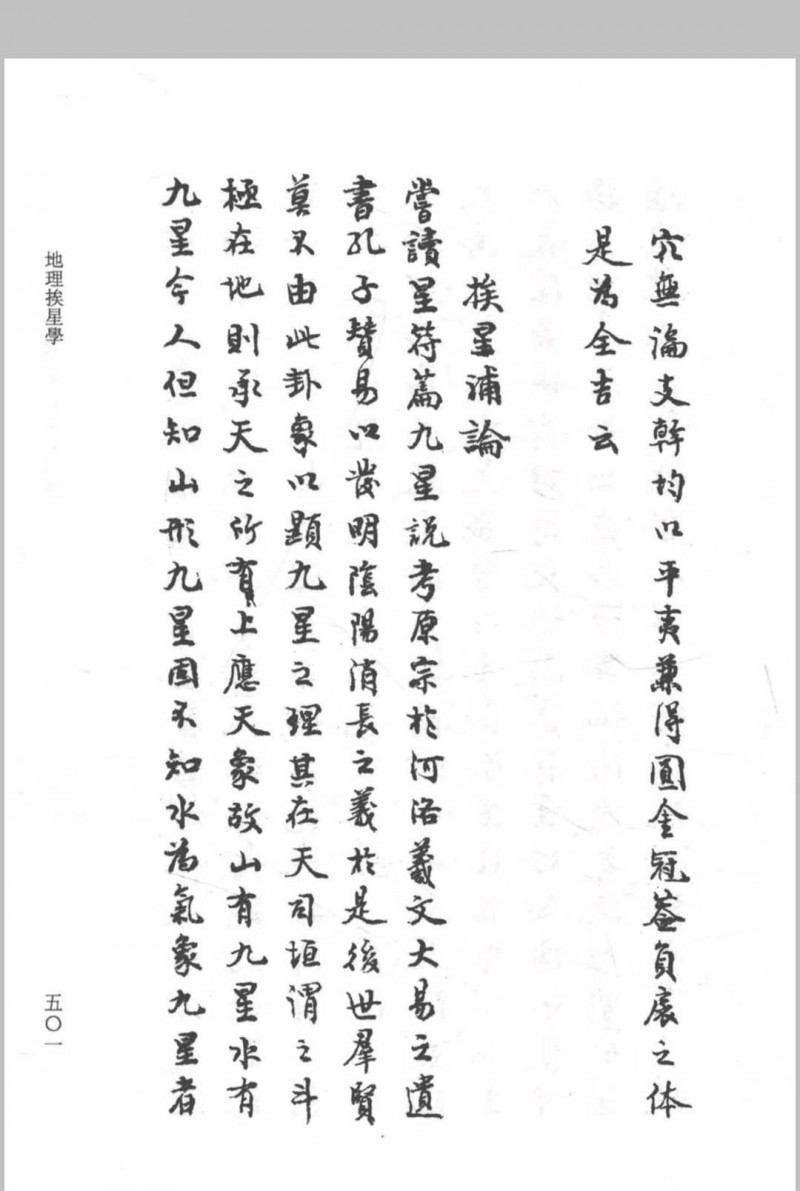 穴無論支幹均以平夷兼得圓金冠蓋負扆之体
是為全吉云
挨星浦論
嘗讀星符篇九星說考原宗於河洛羲文大易之遺
書孔子贊易以發明陰陽消長之義於是後世羣賢
莫不由此卦象以顯九星之理其在天司垣謂之斗
極在地則承天之所有上應天象故山有九星水有
九星今人但知山形九星固不知水為氣象九星者
地理挨星學
五〇一